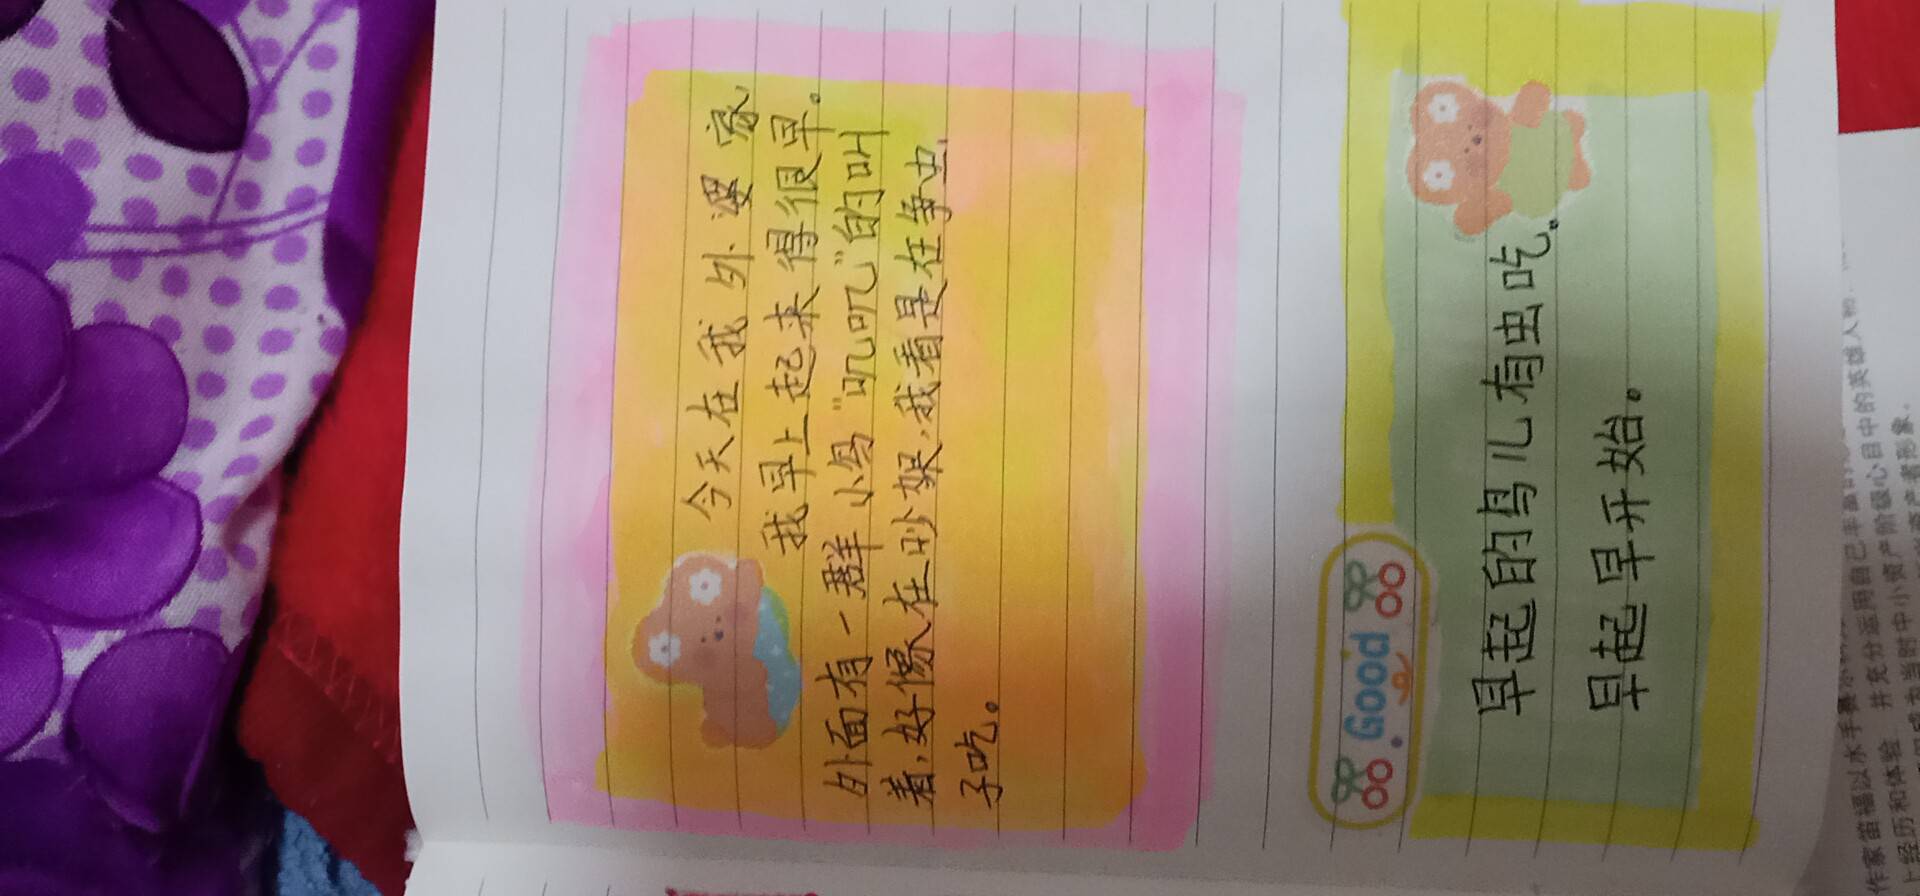 今天在我外婆家
我早上起来得很早。
外面有一群小鸟"叽叽叽"的叫
着,好像在吵架,我看是在争虫
子吃。
Good
早起的鸟儿有虫吃。
早起早开始。
作家笛福以水手赛尔
井充分运用自己丰富的
英雄人物
上经历和体验
当时的中小资产阶级心目中的
资产者形象。